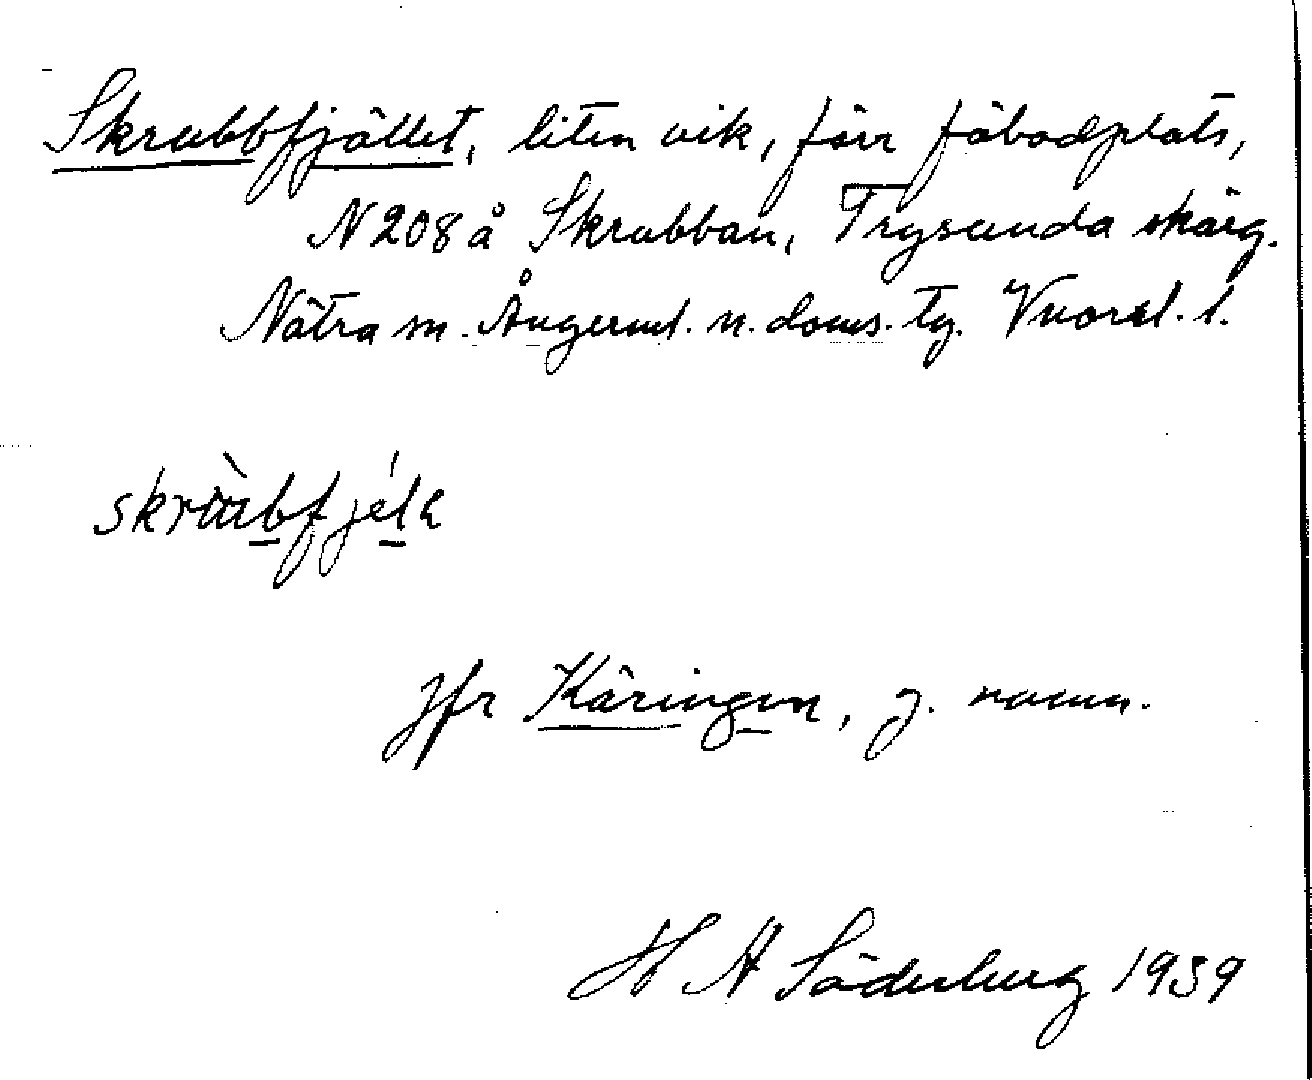 Skrubbfjället, liten vik, förr fäbodplats,
N 208 å Skrubban, Trysunda skärg.
Nätra sn. Ångerml. n. doms. tg. Vnorrl. l.
jfr Käringen, g. namn.
H A Söderberg 1939